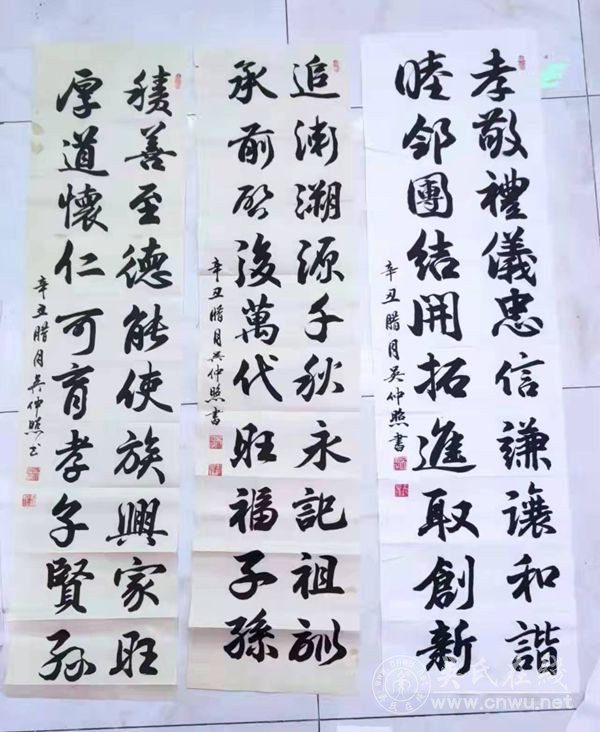 孝敬禮儀忠信謙讓和諧
睦鄰團結開拓進取創新
辛丑腊月吴仲照書
追渊溯源千秋永記祖訓
承前啟後萬代旺福子孫
辛丑腊月吴仲照書
積善至德能使族興家旺
厚道懷仁可育孝子賢孫
辛丑腊月吴仲照书
吴氏在线
www.cnwu.net